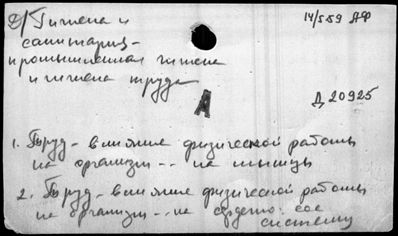 2) Гигиена и
санитария -
промышленная гигиена
и гигиена труда
14/5 59 ДФ
А
Д 20925
1. Труд - влияние физической работы
на организм - - на мышцы
2. Труд - влияние физической работы
на организм - - на сердечно-сос
систему